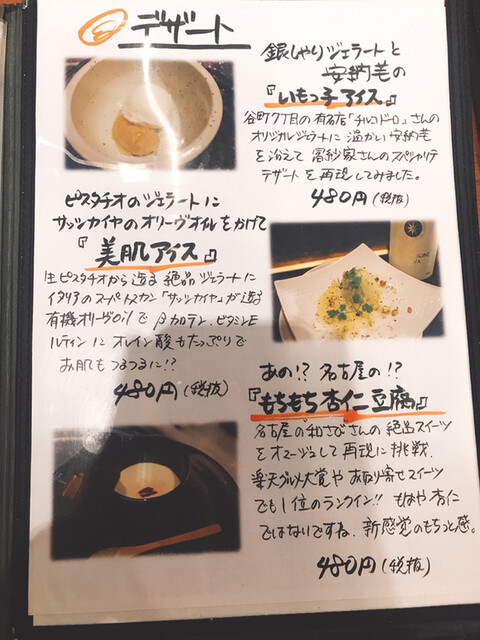 デザート
銀しゃりジェラートと
安納芋の
『いもっ子アイス』
谷町7丁目の有名店「チルコドーロ」さんの
オリジナルジェラートに温かい安納芋
を添えて富紗家さんのスペシャリテ
デザートを再現してみました。
480円(税抜)
ピスタチオのジェラートに
サッシカイヤのオリーヴオイルをかけて
『美肌アイス』
生ピスタチオから造る絶品ジェラートに
イタリアのスーパートスカン「サッシカイヤ」が造る
有機オリーヴoilでβカロテン、ビタミンE
ルティンにオレイン酸もたっぷりで
お肌もつるつるに!?
480円(税抜)
あの!?名古屋の!?
『もちもち杏仁豆腐』
名古屋の和さびさんの絶品スイーツ
をオマージュして再現に挑戦。
楽天グルメ大賞やお取り寄せスイーツ
でも1位のランクイン!!もはや杏仁
ではないですね、新感覚のもちっと感。
480円(税抜)